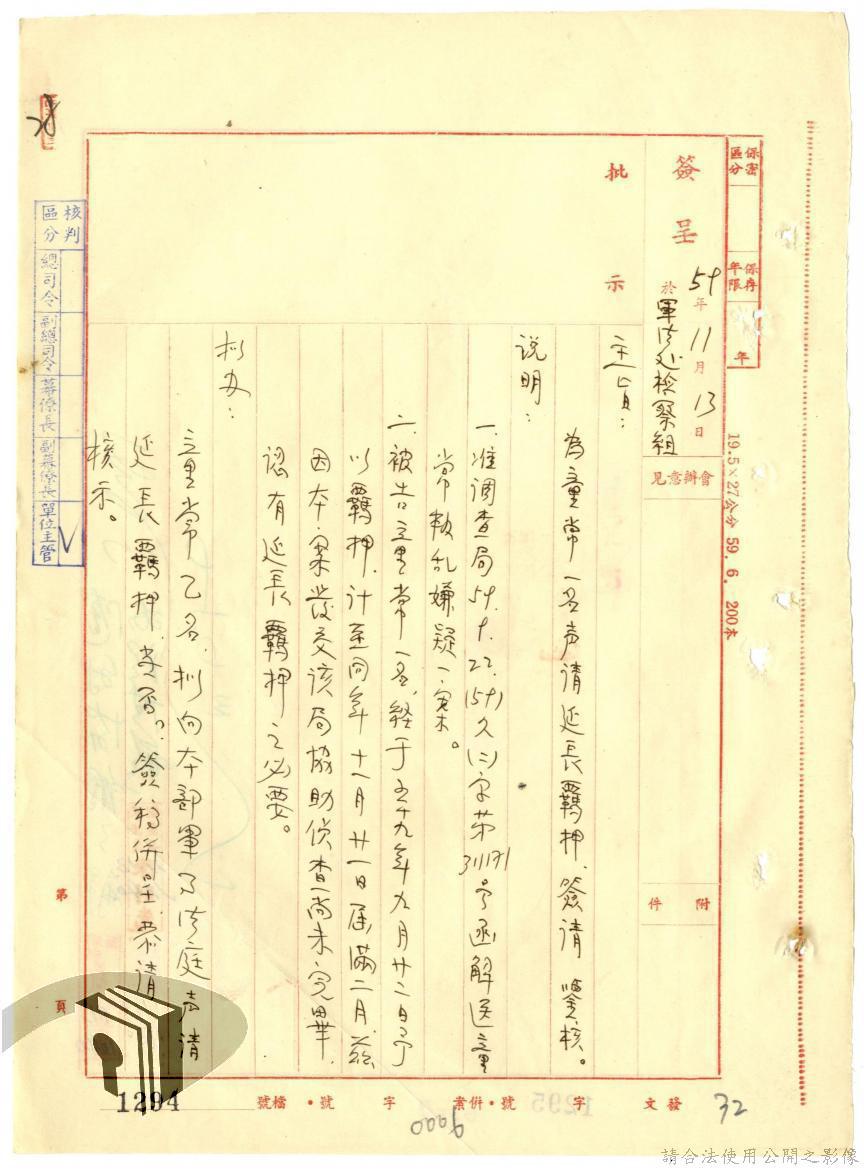 保密區分
保存年限
年
19.5×27公分 59. 6. 200本
簽呈
59年11月13日
於軍法处检察組
會辦意見
附件
批示
主旨：
為童常一名声请延長羁押、簽请 鑒核。
说明：
一、准调查局59.9.22.(59)久(三)字第311171号函解送童
常叛乱嫌疑一案。
二、被告童常一名,经于五十九年九月廿二日予
以羁押,计至同年十一月廿一日屆滿二月,茲
因本案發交该局協助侦查尚未完畢,
認有延長羁押之必要。
拟办：
童常乙名,拟向本部軍事法庭声请
延長羁押,當否?簽稿併呈,恭请
核示。
核判區分
總司令
副總司令
幕僚長
副幕僚長
單位主管
第
頁
發文 字 號·併案 字 號·檔號
1294
32
1295
請合法使用公開之影像